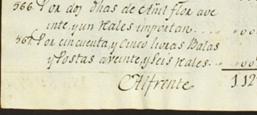 566 Por dos dhas de Añil flor ave
inte, y un reales importan . . . . . 00
567 Por cincuenta, y cinco livras Balas
y Postas a veinte y seis reales . . . 00
Alfrente 112